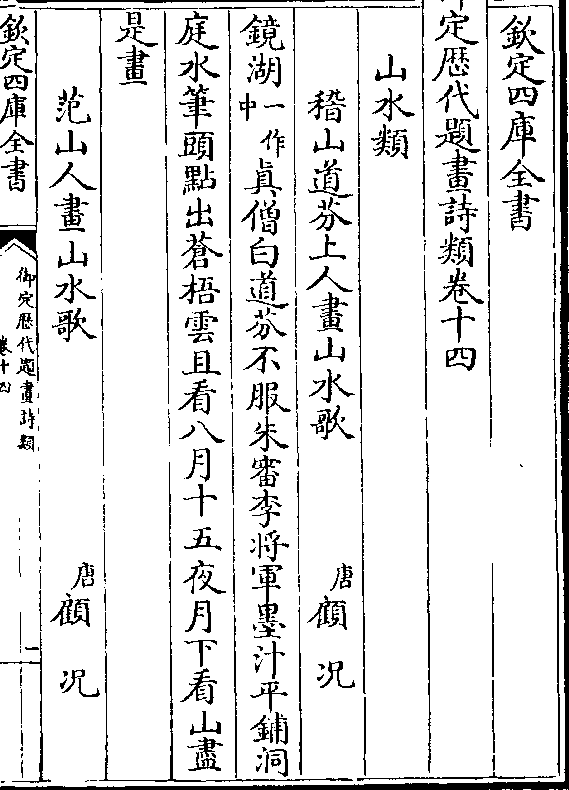 欽定四庫全書
御定歴代題畫詩類卷十四
山水類
稽山道芬上人畫山水歌 唐 顧况
鏡湖一作中眞僧白道芬不服朱審李將軍墨汁平鋪洞
庭水筆頭點出蒼梧雲且看八月十五夜月下看山盡
是畫
范山人畫山水歌 唐 顧况
欽定四庫全書
御定歴代題畫詩類
卷十四
一